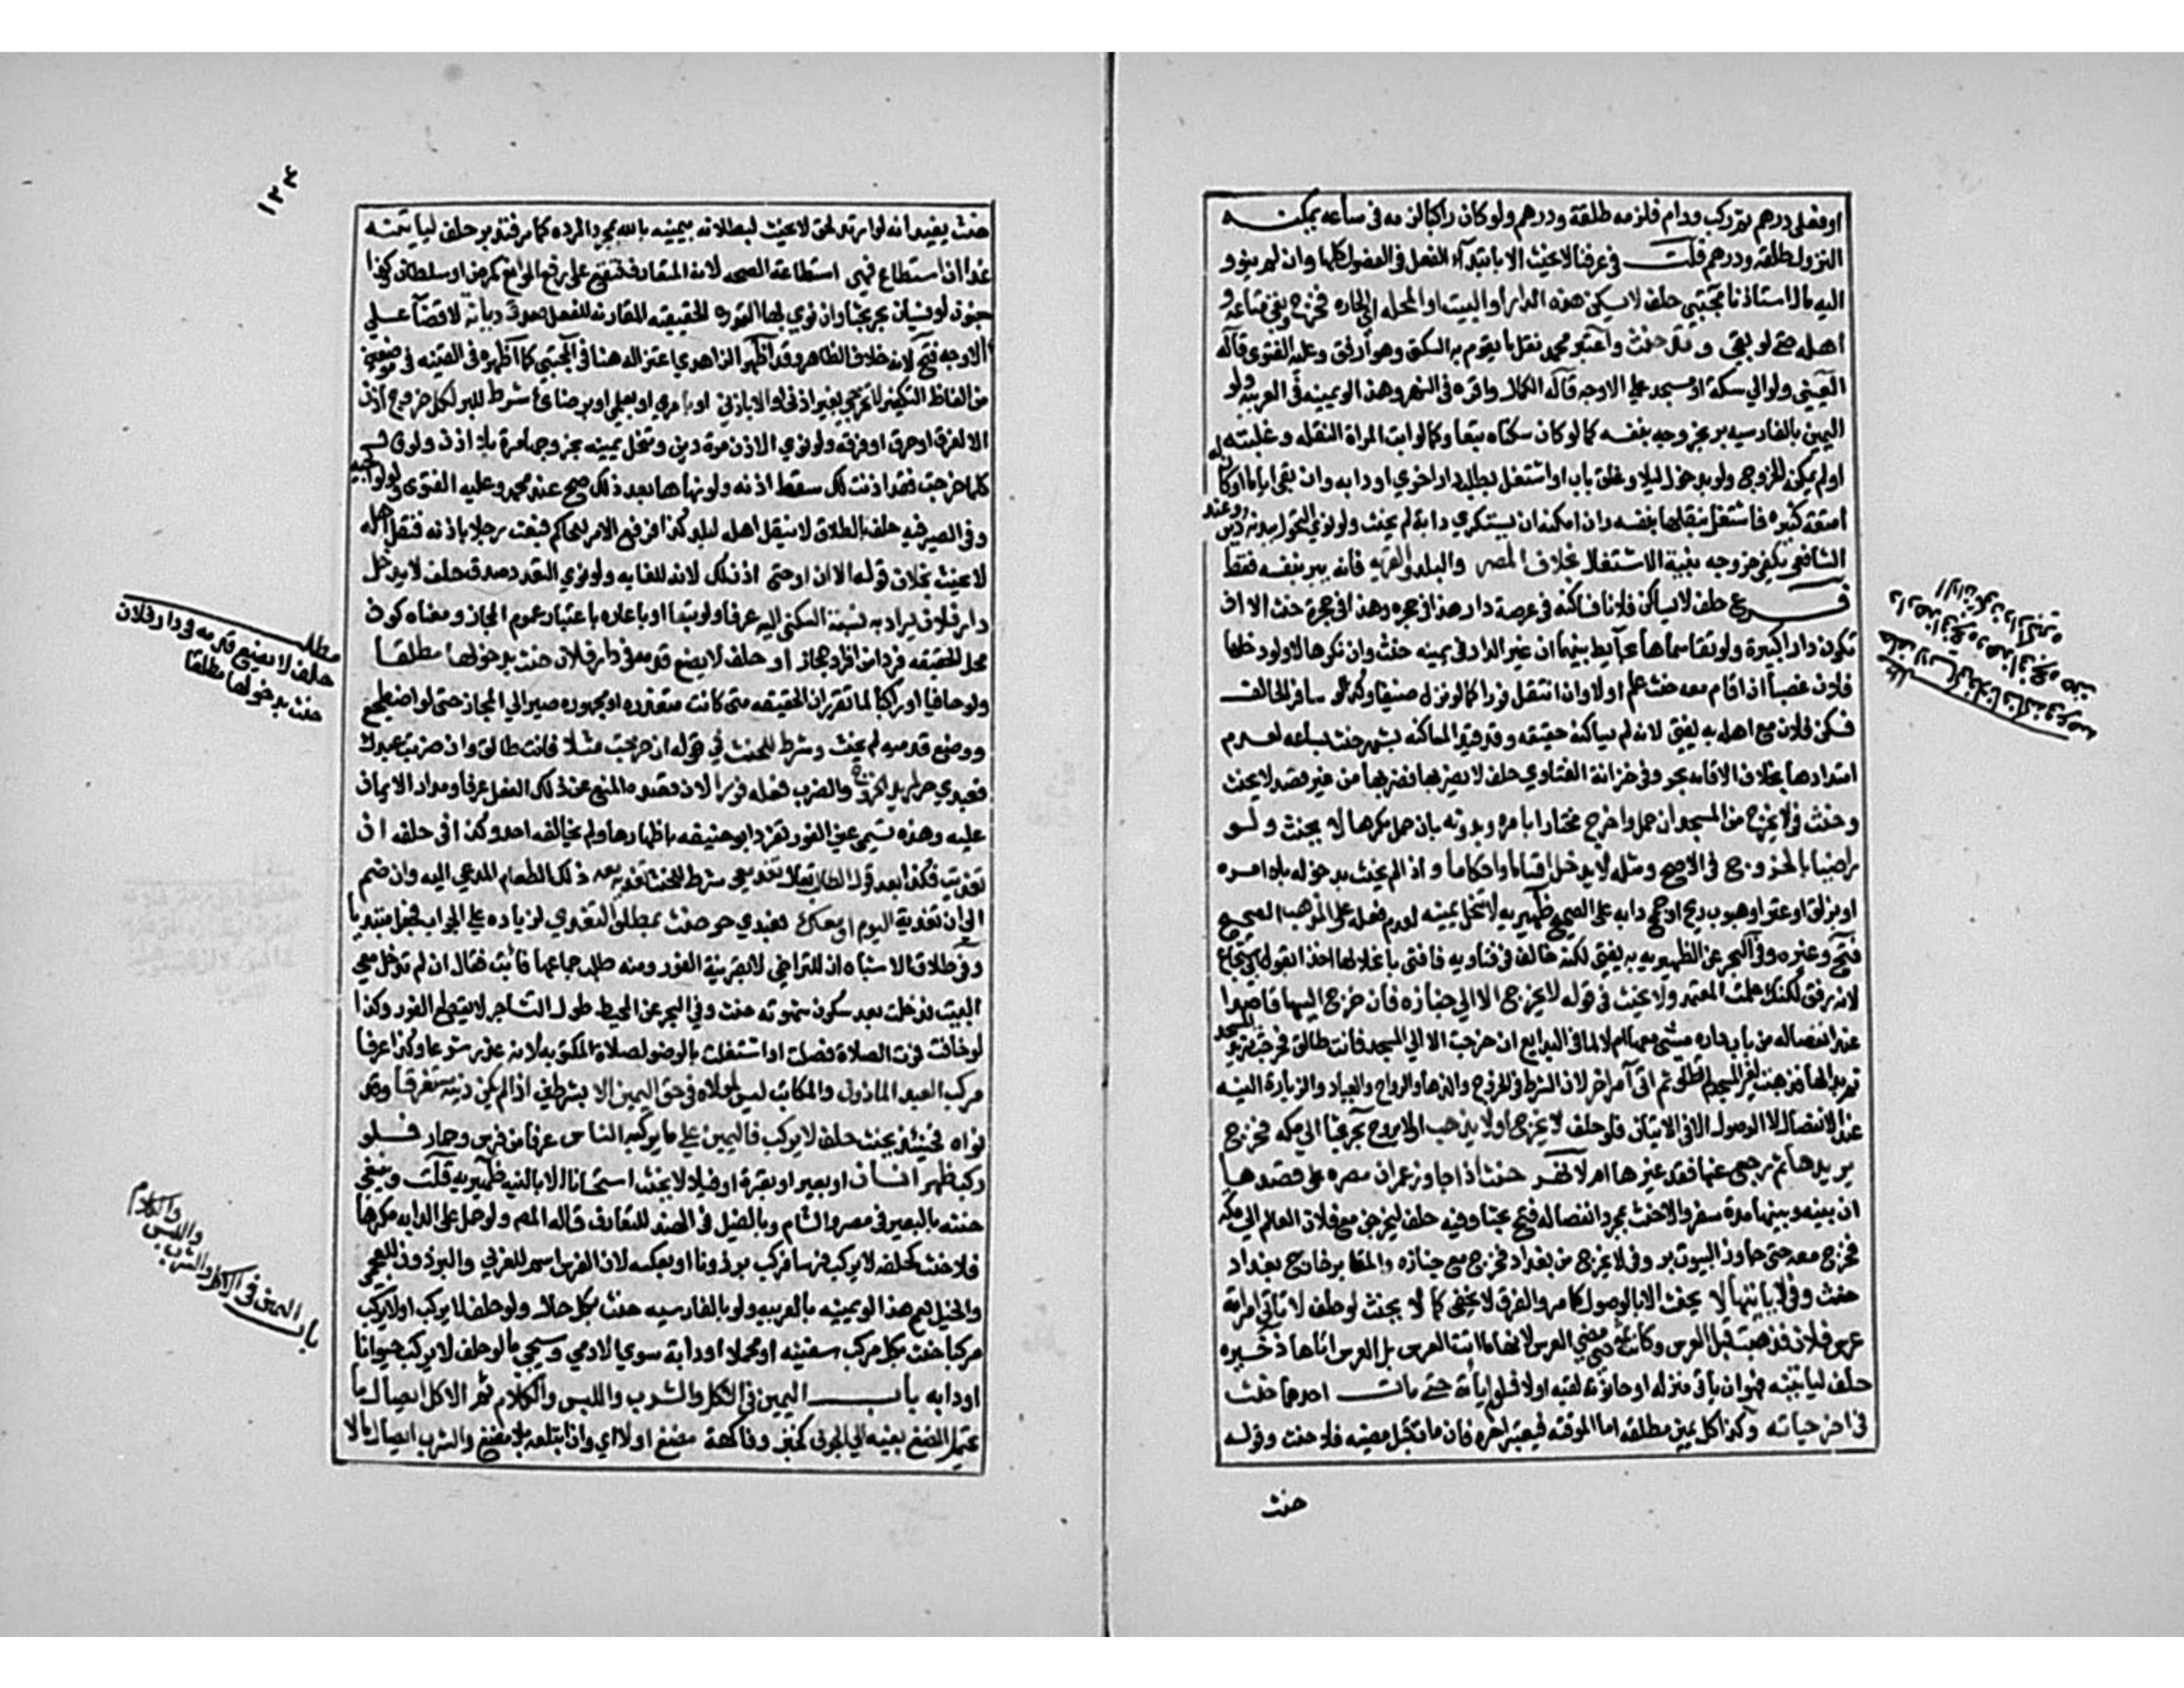 او فعلى درهم ثم ركب ودام فلزمه طلقة ودرهم ولو كان راكبا لزمه في ساعه يمكنه
النزول طلقه ودرهم قلت في عرفنا لا يحنث الا بابتداء الفعل في الفصول كلها وان لم ينو و
اليه مال استاذنا مجتبى حلف لا يسكن هذه الدار او البيت او المحله الحاره فخرج وبقى متاعه و
اهله حتى لو بقى وتد حنث واعتبر محمد نقل ما يقوم به السكنى وهو ارفق وعليه الفتوى قاله
العينى ولو الي سكة او مسجد على الاوجه قاله الكمال واقره في النهر وهذا لو يمينه في العربيه ولو
اليمين بالفارسيه بر بخروجه بنفسه كما لو كان سكناه تبعا وكما لو ابت المراة النقله وغلبته
او لم يمكنه الخروج ولو بدخول ليل او غلق باب او اشتغل بطلب دار اخري او دابه وان بقى اياما او كان له
امتعة كثيره فاشتغل بنقلها بنفسه وان امكنه ان يستكري دابة لم يحنث ولو نوي التحول ببدنه دين وعند
الشافعي يكفي خروجه بنية الانتقال بخلاف المصر والبلد والقريه فانه يبر بنفسه فقط
فرع حلف لا يساكن فلانا فساكنه في عرصة دار هذا في حجره وهذا في حجرة حنث الا ان
تكون دارا كبيرة ولو تقاسماها بحائط بينهما ان عين الدار في يمينه حنث وان نكرها لا ولو دخلها
فلان غصبا ان اقام معه حنث علم او لا وان انتقل فورا كما لو نزل ضيفا وكذا لو سافر الحالف
فسكن فلان مع اهله به يفتى لانه لم يساكنه حقيقه ولو قيد المساكنه بشهر حنث بساعه لعدم
امتدادها بخلاف الاقامه بحر وفي خزانة الفتاوي حلف لا يضربها فضربها من غير قصد لا يحنث
وحنث في لا يخرج من المسجد ان حمل واخرج مختارا بامره وبدونه بان حمل مكرها لا يحنث ولو
راضيا بالخروج في الاصح ومثله لا يدخل اقساما واحكاما واذا لم يحنث بدخوله بلا امره
او بزلق او عثر او هبوب ريح او جمح دابه على الصحيح ظهيريه لا تنحل يمينه لعدم فعله على المذهب الصحيح
فتح وغيره وفي البحر عن الظهيريه به يفتى لكنه خالف في فتاويه فافتى بانحلالها اخذا بقول ابي شجاع
لانه ارفق لكنك علمت المعتمد ولا يحنث في قوله لا يخرج الا الي جنازه فان خرج اليها قاصدا
عند انفصاله من باب داره مشى معها ام لا لما في البدايع ان خرجت الا الي المسجد فانت طالق فخرجت تريد المسجد
ثم بدا لها فذهبت لغير المسجد لم تطلق ثم اتى امرا اخر لان الشرط في الخروج والذهاب والرواح والعياد والزيارة النيه
عند الانفصال لا الوصول الا في الاتيان فلو حلف لا يخرج او لا يذهب او لا يروح بحر بحثا الي مكه فخرج
يريدها ثم رجع عنها قصد غيرها ام لا نهر حنث اذا جاوز عمران مصره على قصدها
ان بينه وبينها مدة سفر والا حنث بمجرد انفصاله فتح بحثا وفيه حلف ليخرجن مع فلان العالم الي مكه
فخرج معه حتى جاوز البيوت بر وفي لا يخرج من بغداد فخرج مع جنازه والمقابر خارج بغداد
حنث وفي لا ياتيها لا يحنث الا بالوصول كما مر والفرق لا يخفى كما لا يحنث لو حلف لا تاتي امراته
عرس فلان فذهبت قبل العرس وكانت ثمه حتى مضى العرس لانها ما اتت العرس بل العرس اتاها ذخيره
حلف لياتينه فهو ان ياتى منزله او حانوته لقيه او لا فلو لم ياته حتى مات احدهما حنث
في اخر حياته وكذا كل يمين مطلقه اما الموقته فيعتبر اخره فان مات قبل مضيه فلا حنث وقوله
حنث
مطلب
حلف لا يساكن فلانا فساكنه في عرصة
دار هذا في حجره وهذا في حجره حنث
الا ان تكون دارا كبيره
١٢٤
حنث يفيد انه لو ارتد لحق لا يحنث لبطلانه يمينه بالله بمجرد الرده كما مر فتدبر حلف لياتينه
غدا ان استطاع فهي استطاعة الصحه لانه المتعارف فتقع على رفع الموانع كمرض او سلطان وكذا
جنون او نسيان بحر بحثا وان نوي بها القدره الحقيقيه المقارنه للفعل صدق ديانة لا قضاء على
الاوجه فتح لانه خلاف الظاهر وقد اظهر الزاهدي اعتزاله هنا في المجتبى كما اظهره في القنيه في موضعين
من الفاظ التكفير لا تخرجي بغير اذنى او الا باذني او بامري او بعلمي او برضائي شرط للبر لكل خروج اذن
الا لغرق او حرق او فرقه ولو نوي الاذن مرة دين وتنحل يمينه بخروجها مرة بلا اذن ولو قال
كلما خرجت فقد اذنت لك سقط اذنه ولو نهاها بعد ذلك صح عند محمد وعليه الفتوى ولوالجيه
وفي الصيرفيه حلف بالطلاق لا ينقل اهله لبلد كذا فرفع الامر للحاكم فبعث رجلا باذنه فنقل اهله
لا يحنث بخلاف قوله الا ان او حتى اذن لك لانه للغايه ولو نوي التعدد صدق حلف لا يدخل
دار فلان يراد به نسبة السكنى اليه عرفا ولو تبعا او باعاره باعتبار عموم المجاز ومعناه كون
محل الحقيقه فردا من افراد المجاز او حلف لا يضع قدمه في دار فلان حنث بدخولها مطلقا
ولو حافيا او راكبا لما تقرر ان الحقيقه متى كانت متعذره او مهجوره صير الي المجاز حتى لو اضطجع
ووضع قدميه لم يحنث وشرط للحنث في قوله ان خرجت مثلا فانت طالق وان ضربت عبدك
فعبدي حر لمريد الخروج والضرب فعله فورا لان قصده المنع عن ذلك الفعل عرفا ومدار الايمان
عليه وهذه تسمى يمين الفور تفرد ابو حنيفه باظهارها ولم يخالفه احد وكذا في حلفه ان
تغديت فكذا بعد قول الطالب تعال تغد معى شرط للحنث تغديه معه ذلك الطعام المدعي اليه وان ضم
الي ان تغديت اليوم او معك فعبدي حر حنث بمطلق التغدي لزياده على الجواب فجعل مبتديا
وفي طلاق الاشباه ان للتراخي الا بقرينة الفور ومنه طلب جماعها فابت فقال ان لم تدخلي معي
البيت فدخلت بعد سكون شهوته حنث وفي البحر عن المحيط طول التشاجر لا يقطع الفور وكذا
لو خافت فوت الصلاة فصلت او اشتغلت بالوضو لصلاة المكتوبه لانه عذر شرعا وكذا عرفا
مركب العبد الماذون والمكاتب ليس لمولاه في حق اليمين الا بشرطين اذا لم يكن دينه مستغرقا وقد
نواه فحينئذ يحنث حلف لا يركب فاليمين على ما يركبه الناس عرفا من فرس وحمار فلو
ركب ظهر انسان او بعير او بقرة او فيل لا يحنث استحسانا الا بالنيه ظهيريه قلت وينبغي
حنثه بالبعير في مصر والشام وبالفيل في الهند للتعارف قاله المص ولو حمل على الدابه مكرها
فلا حنث كحلفه لا يركب فرسا فركب برذونا او بعكسه لان الفرس اسم للعربي والبرذون للعجمي
والخيل يعم هذا لو يمينه بالعربيه ولو بالفارسيه حنث بكل حال ولو حلف لا يركب او لا يركب
مركبا حنث بكل مركب سفينه او محملا او دابة سوي الادمي وسيجي ما لو حلف لا يركب حيوانا
او دابه باب اليمين في الاكل والشرب واللبس والكلام ثم الاكل ايصال ما
يحتمل المضغ بفيه الي الجوف كخبز وفاكهة مضغ او لا اي وان ابتلعه بلا مضغ والشرب ايصال ما لا
مطلب
حلف لا يضع قدمه في دار فلان
حنث بدخولها مطلقا
باب اليمين في الاكل والشرب
واللبس والكلام